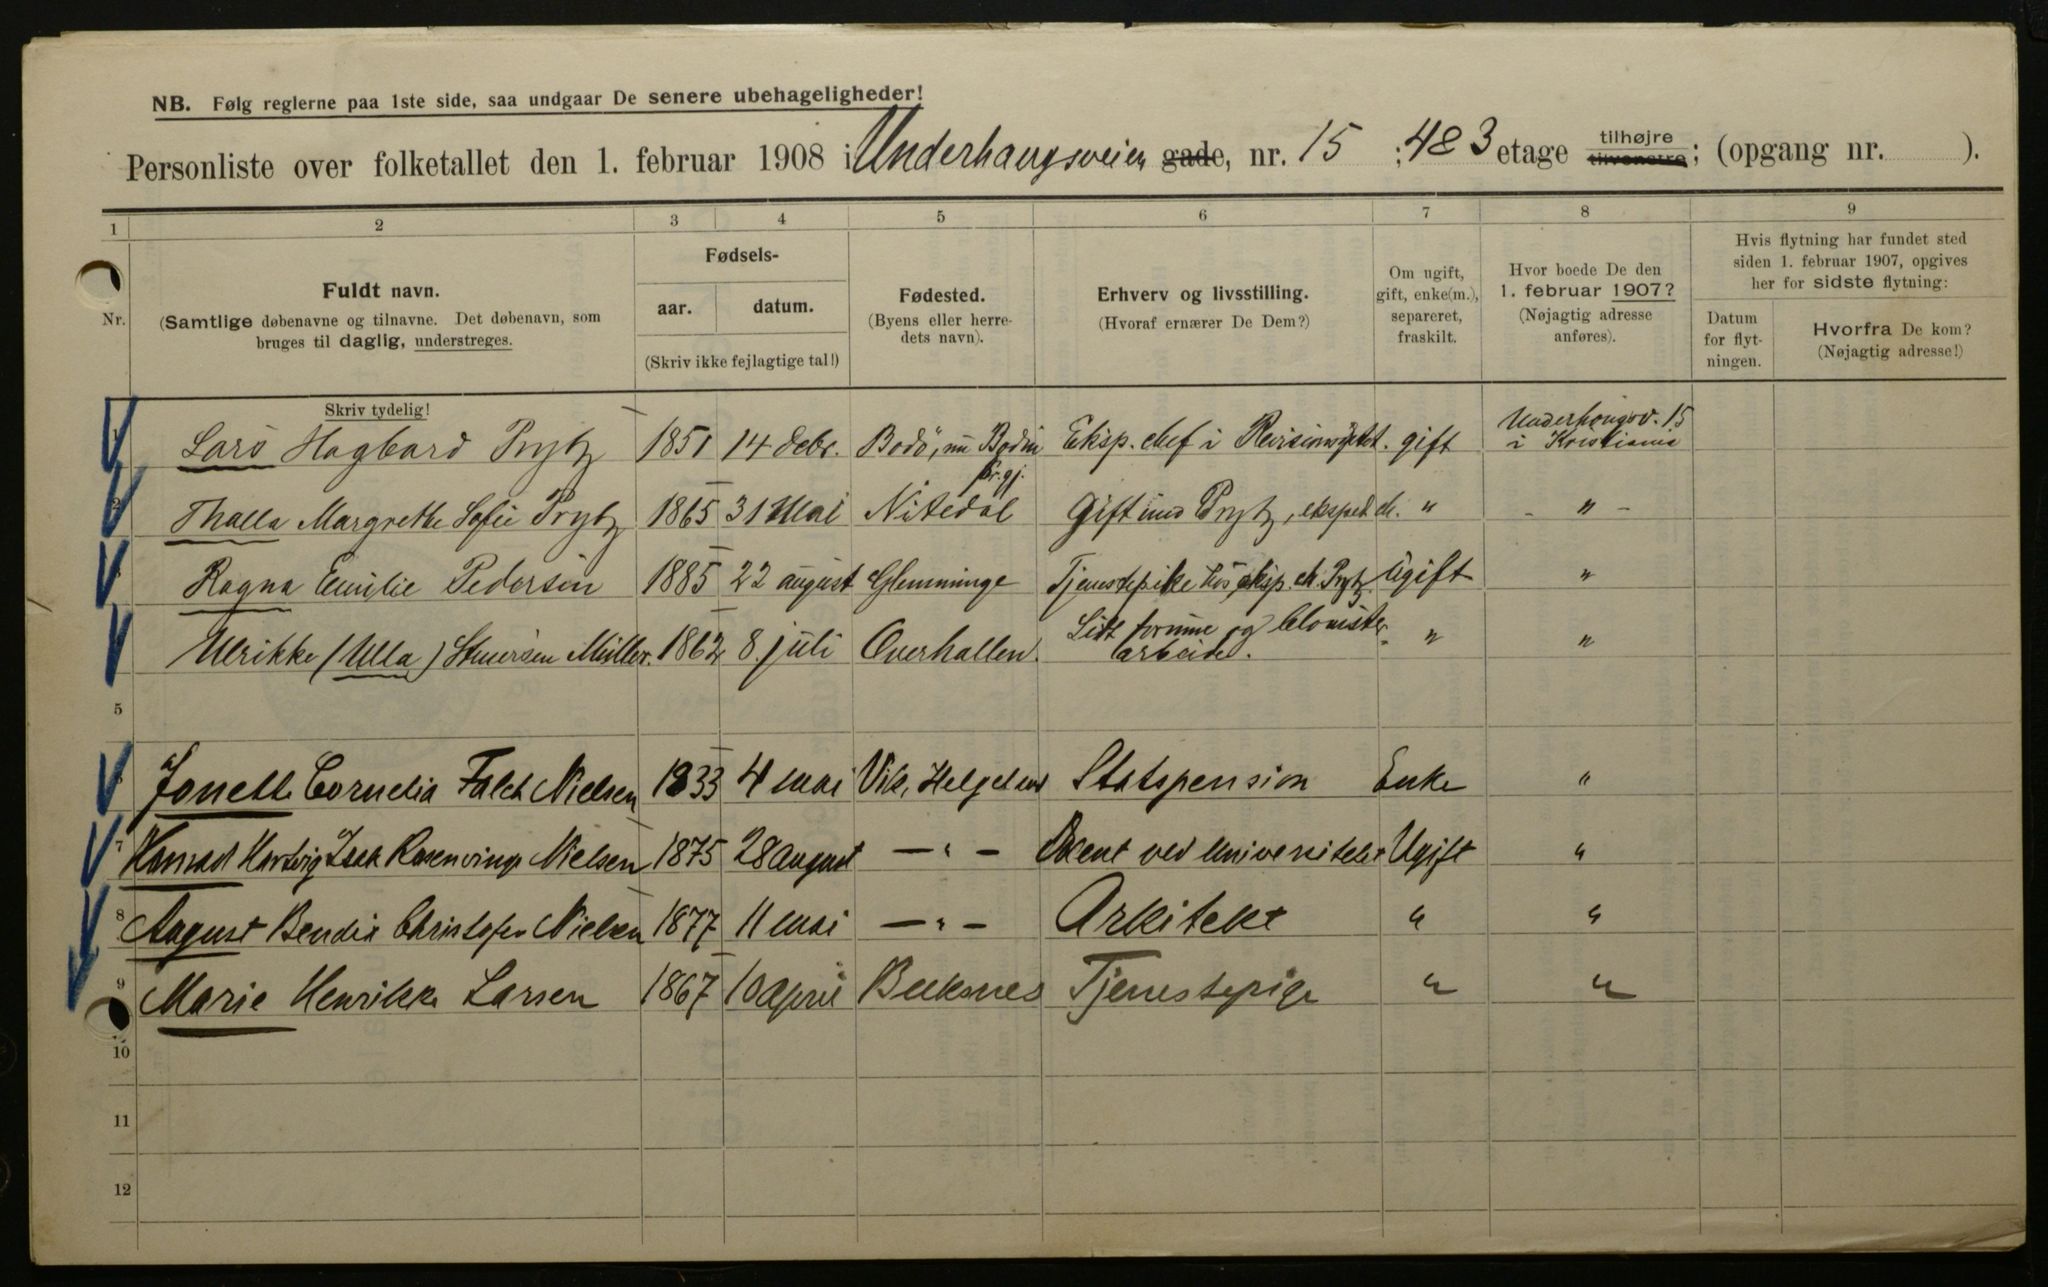 NB. Følg reglerne paa 1ste side, saa undgaar De senere ubehageligheder!
Personliste over folketallet den 1. februar 1908 i Underhaugsveien gade, nr. 15 ; 4 & 3 etage tilhøjre tilvenstre; (opgang nr. ).
1 2 3 4 5 6 7 8 9
Nr.
Fuldt navn.
(Samtlige døbenavne og tilnavne. Det døbenavn, som
bruges til daglig, understreges.
Skriv tydelig!
Fødsels-
aar. datum.
(Skriv ikke fejlagtige tal!)
Fødested.
(Byens eller herre-
dets navn).
Erhverv og livsstilling.
(Hvoraf ernærer De Dem?)
Om ugift,
gift, enke(m.),
separeret,
fraskilt.
Hvor boede De den
1. februar 1907?
(Nøjagtig adresse
anføres).
Hvis flytning har fundet sted
siden 1. februar 1907, opgives
her for sidste flytning:
Datum
for flyt-
ningen.
Hvorfra De kom?
(Nøjagtig adresse!)
1 Lars Hagbard Prytz 1851 14 debr. Bodö, nu Bodin pr.gj. Eksp. chef i Revisionsdptet. gift Underhaugsv. 15 i Kristiania
2 Thalla Margrethe Sofie Prytz 1865 31 Mai Nitedal Gift med Prytz, eksped ch. " - " -
3 Ragna Emilie Pedersen 1885 22 august Glemminge Tjenestepike hos eksp. ch Prytz Ugift "
Ulrikke (Ulla) Müller. 1862 8. juli Overhallen. Lidt formue og blomster arbeide. " "
5
6 Jonette Cornelia Falch Nielsen 1833 4 mai Vik, Helgeland Statspension Enke "
7 Konrad Hartvig Isak Rosenvinge Nielsen 1875 28 august — " — Docent ved Universitetet Ugift "
8 August Bendix Christofer Nielsen 1877 11 mai — " — Arkitekt " "
9 Marie Henrikke Larsen 1867 10 april Beeksnes Tjenestepige " "
10
11
12